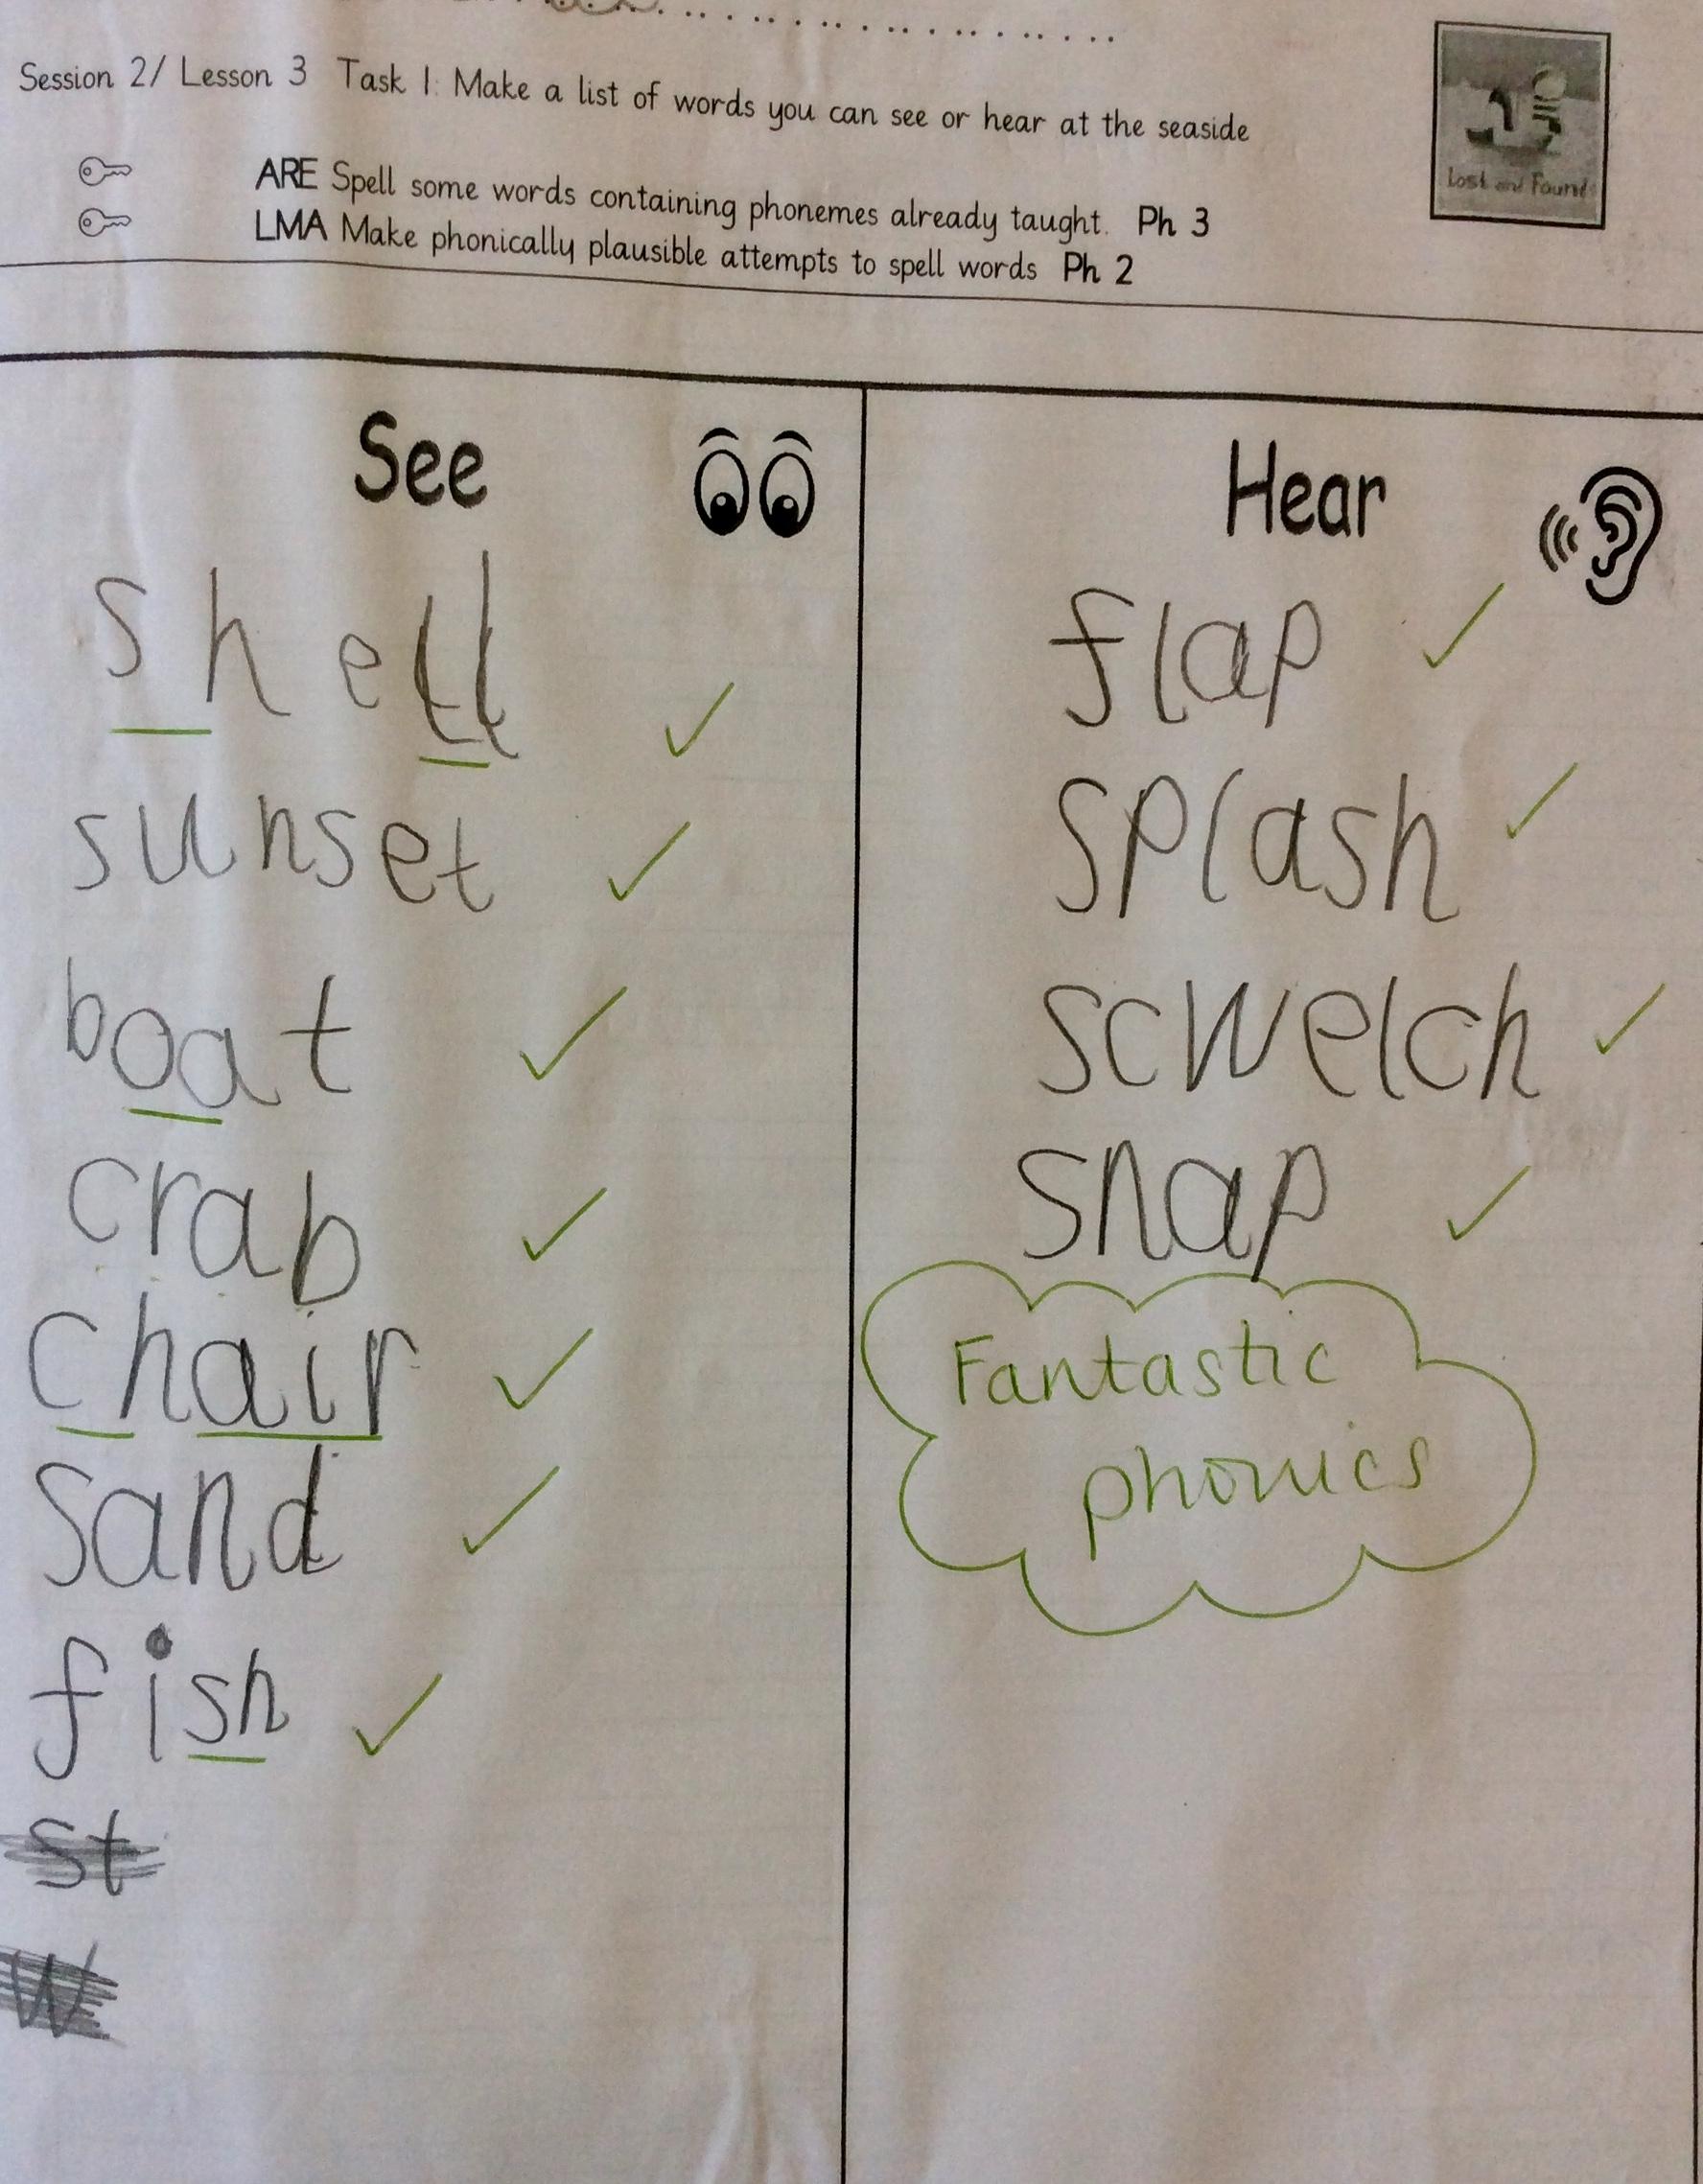 Session 2/ Lesson 3 Task 1: Make a list of words you can see or hear at the seaside
ARE Spell some words containing phonemes already taught. Ph 3
LMA Make phonically plausible attempts to spell words Ph 2
Lost and Found
See
Hear
shell
sunset
boat
crab
chair
sand
fish
st
w
flap
splash
scwelch
snap
Fantastic
phonics